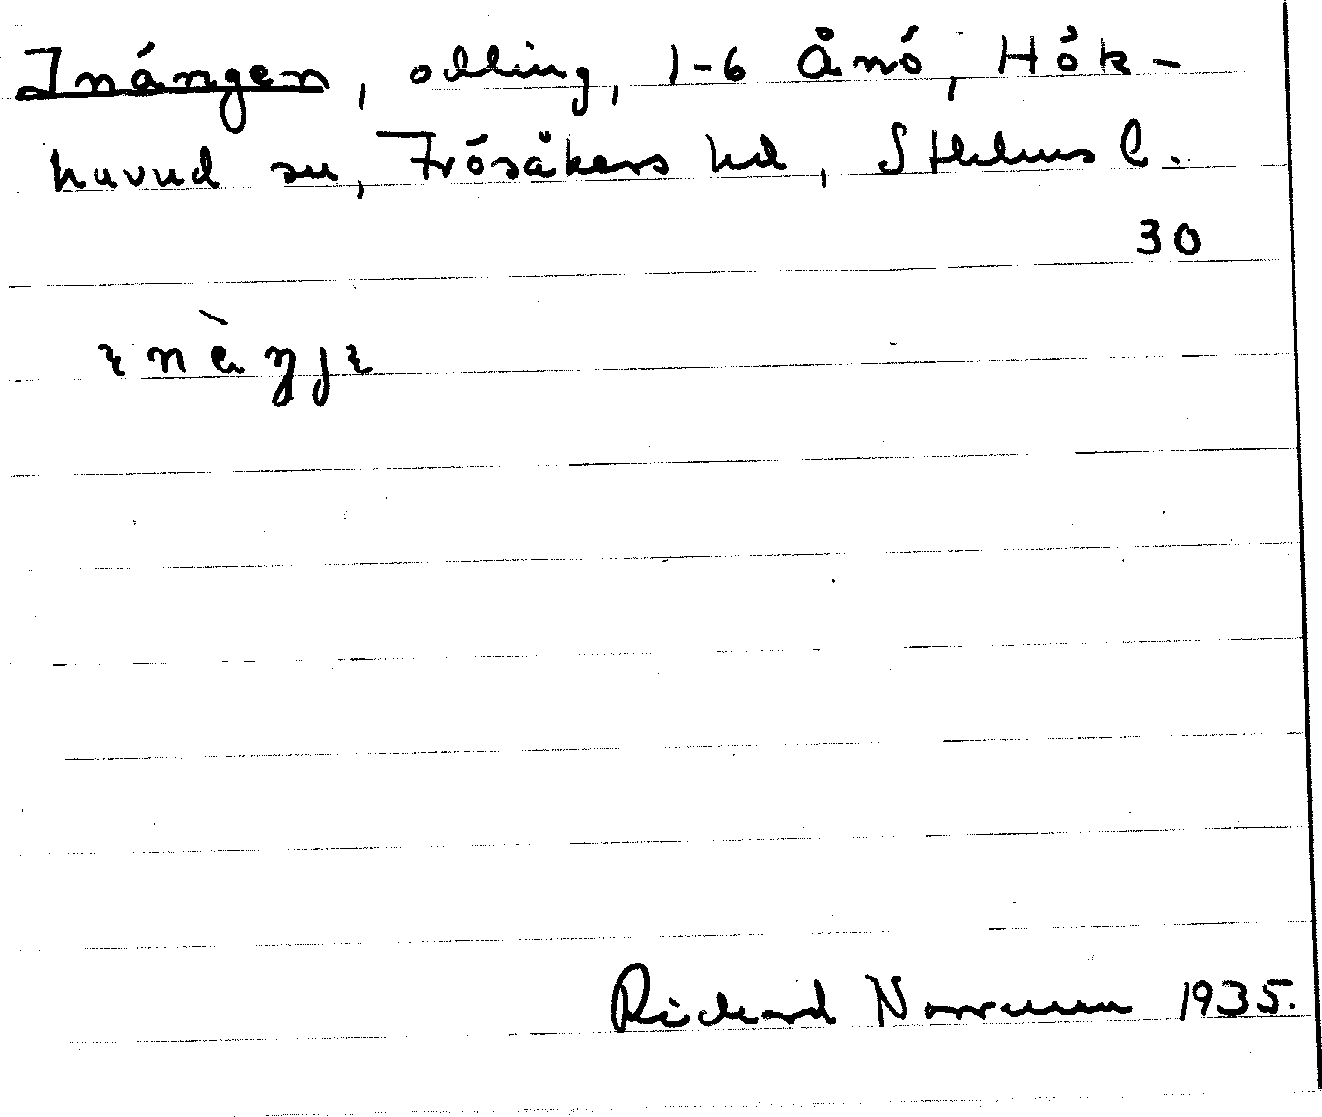 Inängen, odling, 1-6 Ånö, Hök-
huvud sn, Frösåkers hd, Sthlms l.
30
Richard Norrman 1935.